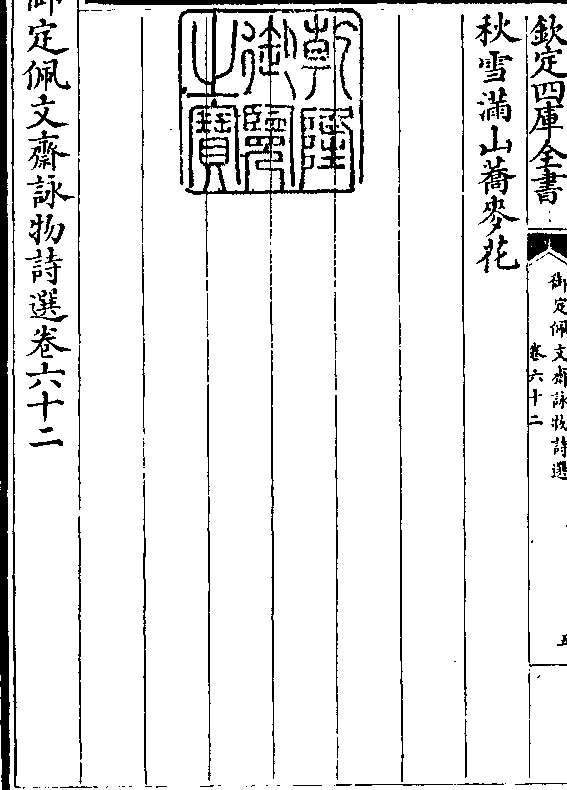 欽定四庫全書
御定佩文齋詠物詩選
卷六十二
五
秋雪滿山蕎麥花
乾隆御覽之寶
御定佩文齋詠物詩選卷六十二